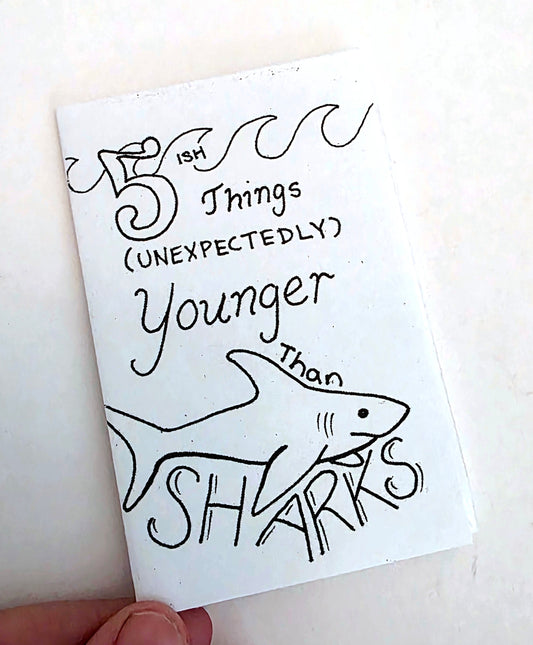 5 ISH
Things
(UNEXPECTEDLY)
Younger
Than
SHARKS